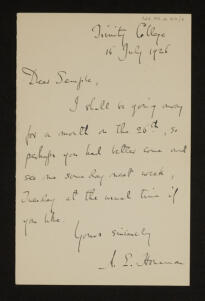 Trinity College
16 July 1926
Dear Semple,
I shall be going away
for a month on the 26th, so
perhaps you had better come and
see me some day next week,
Tuesday at the usual time if
you like.
Yours sincerely
A. E. Housman